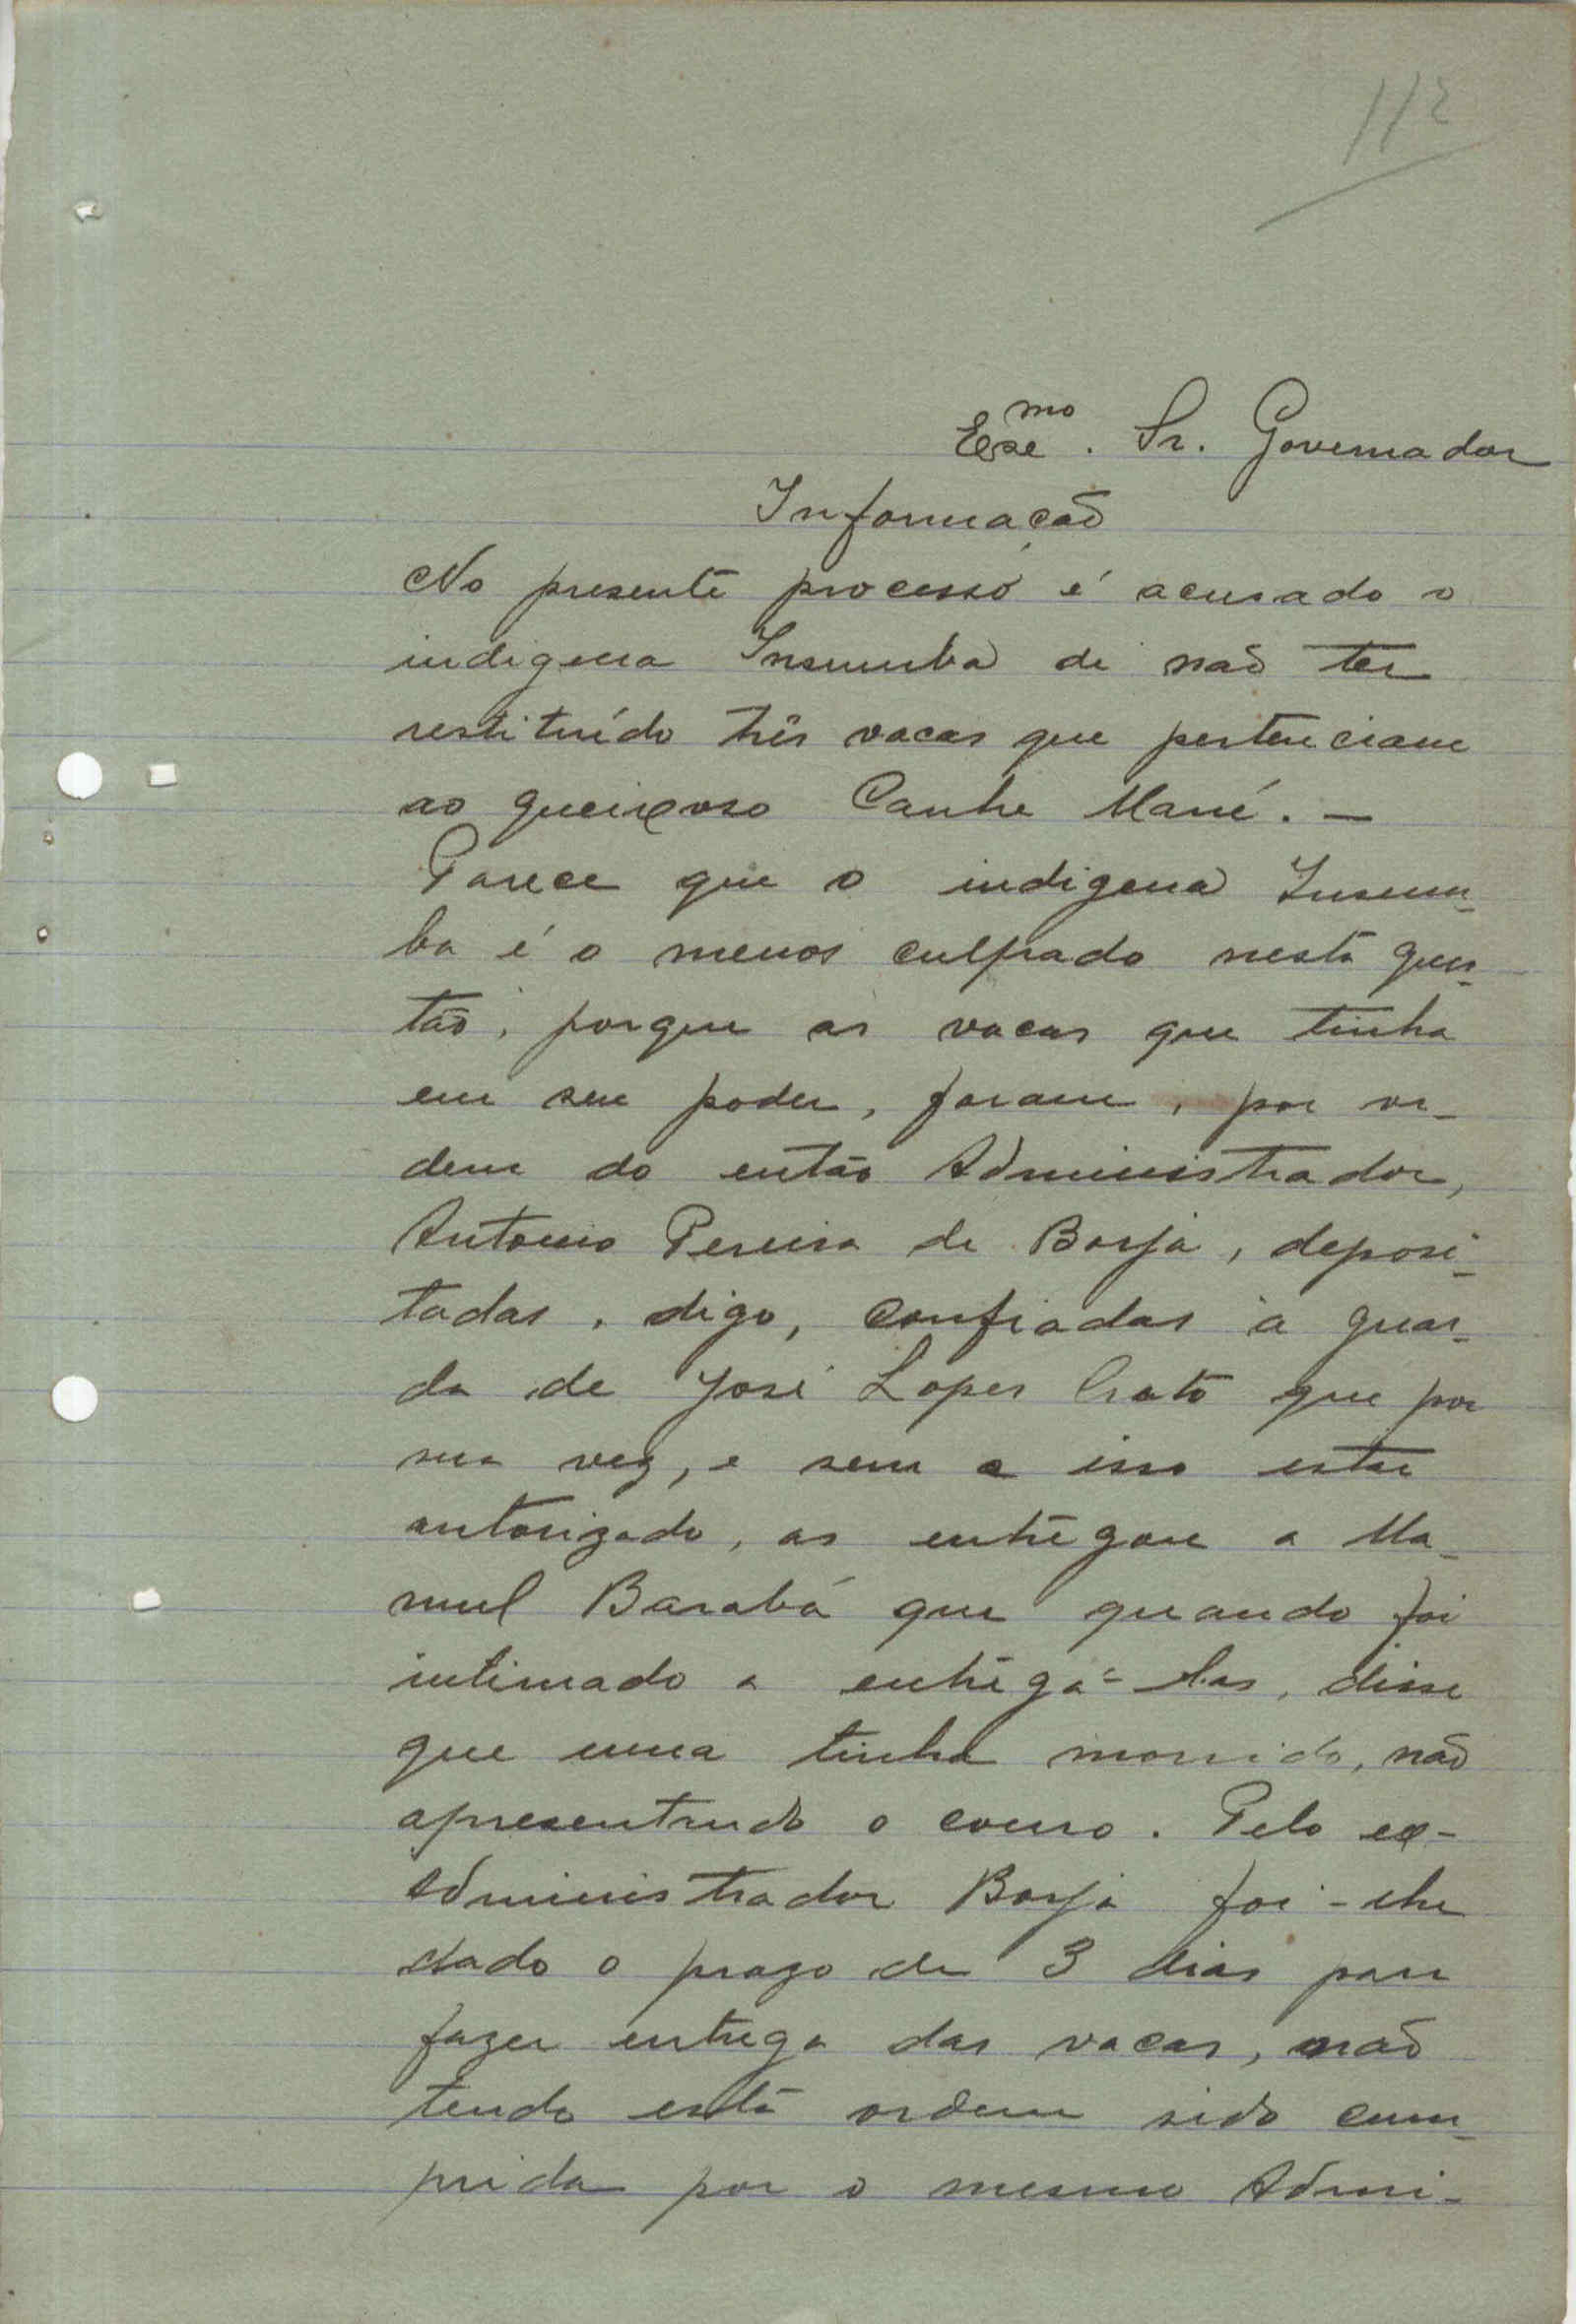 112
Exmo. Sr. Governador
Informação
No presente processo é acusado o
indigena Insumba de não ter
restituído três vacas que pertenciam
ao queixoso Canhe Mané. —
Parece que o indigena Insum-
ba é o menos culpado nesta ques-
tão, porque as vacas que tinha
em seu poder, foram, por or-
dem do então Administrador,
Antonio Pereira de Borja, deposi-
tadas, digo, confiadas à guar-
da de José Lopes Crato que por
sua vez, e sem a isso estar
autorizado, as entregou a Ma-
mul Barabá que quando foi
intimado a entregá-las, disse
que uma tinha morrido, não
apresentando o couro. Pelo ex-
Administrador Borja foi-lhe
dado o prazo de 3 dias para
fazer entrega das vacas, não
tendo esta ordem sido cum-
prida por o mesmo Admi-